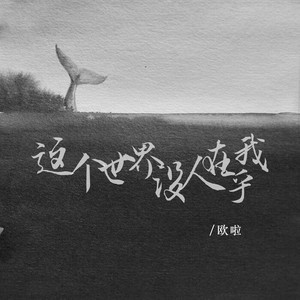 这个世界没人在我乎
/欧啦